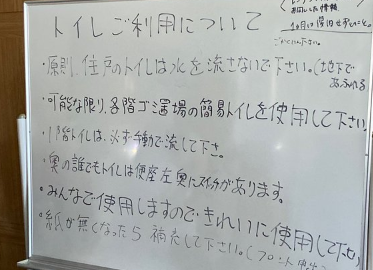 トイレご利用について
ごかくにん下さい。
・原則、住戸のトイレは水を流さないで下さい。(地下で
あふれる
・可能な限り、各階ゴミ置場の簡易トイレを使用して下さい
・1階トイレは、必ず手動で流して下さい。
・奥の誰でもトイレは便座左奥にスイッチがあります。
・みんなで使用しますので、きれいに使用して下さい
・紙が無くなったら 補充して下さい。(フロント